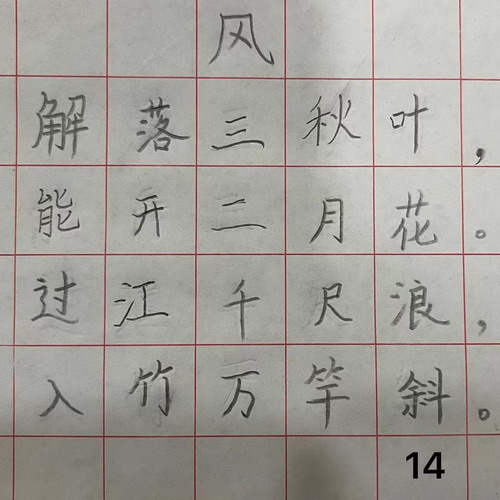 风
解落三秋叶，
能开二月花。
过江千尺浪，
入竹万竿斜。
14